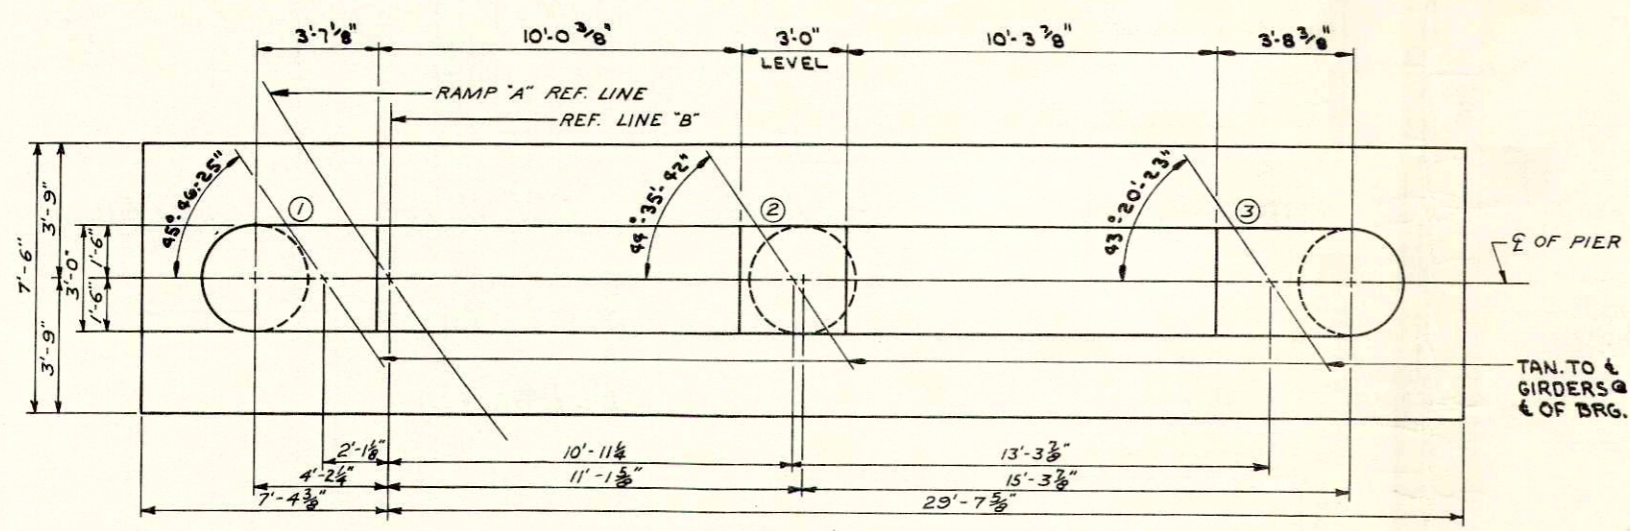 3'-7⅛"
10'-0⅜"
3'-0"
10'-3⅞"
3'-8⅜"
LEVEL
RAMP "A" REF. LINE
REF. LINE "B"
45°-46'-25"
44°-35'-42"
43°-20'-23"
1
2
3
7'-6"
3'-9"
3'-9"
3'-0"
1'-6"
1'-6"
℄ OF PIER
TAN. TO ℄
GIRDERS @
℄ OF BRG.
2'-1⅛"
10'-11¼
13'-3⅞"
4'-2¼"
11'-1⅝"
15'-3⅞"
7'-4⅜"
29'-7⅝"